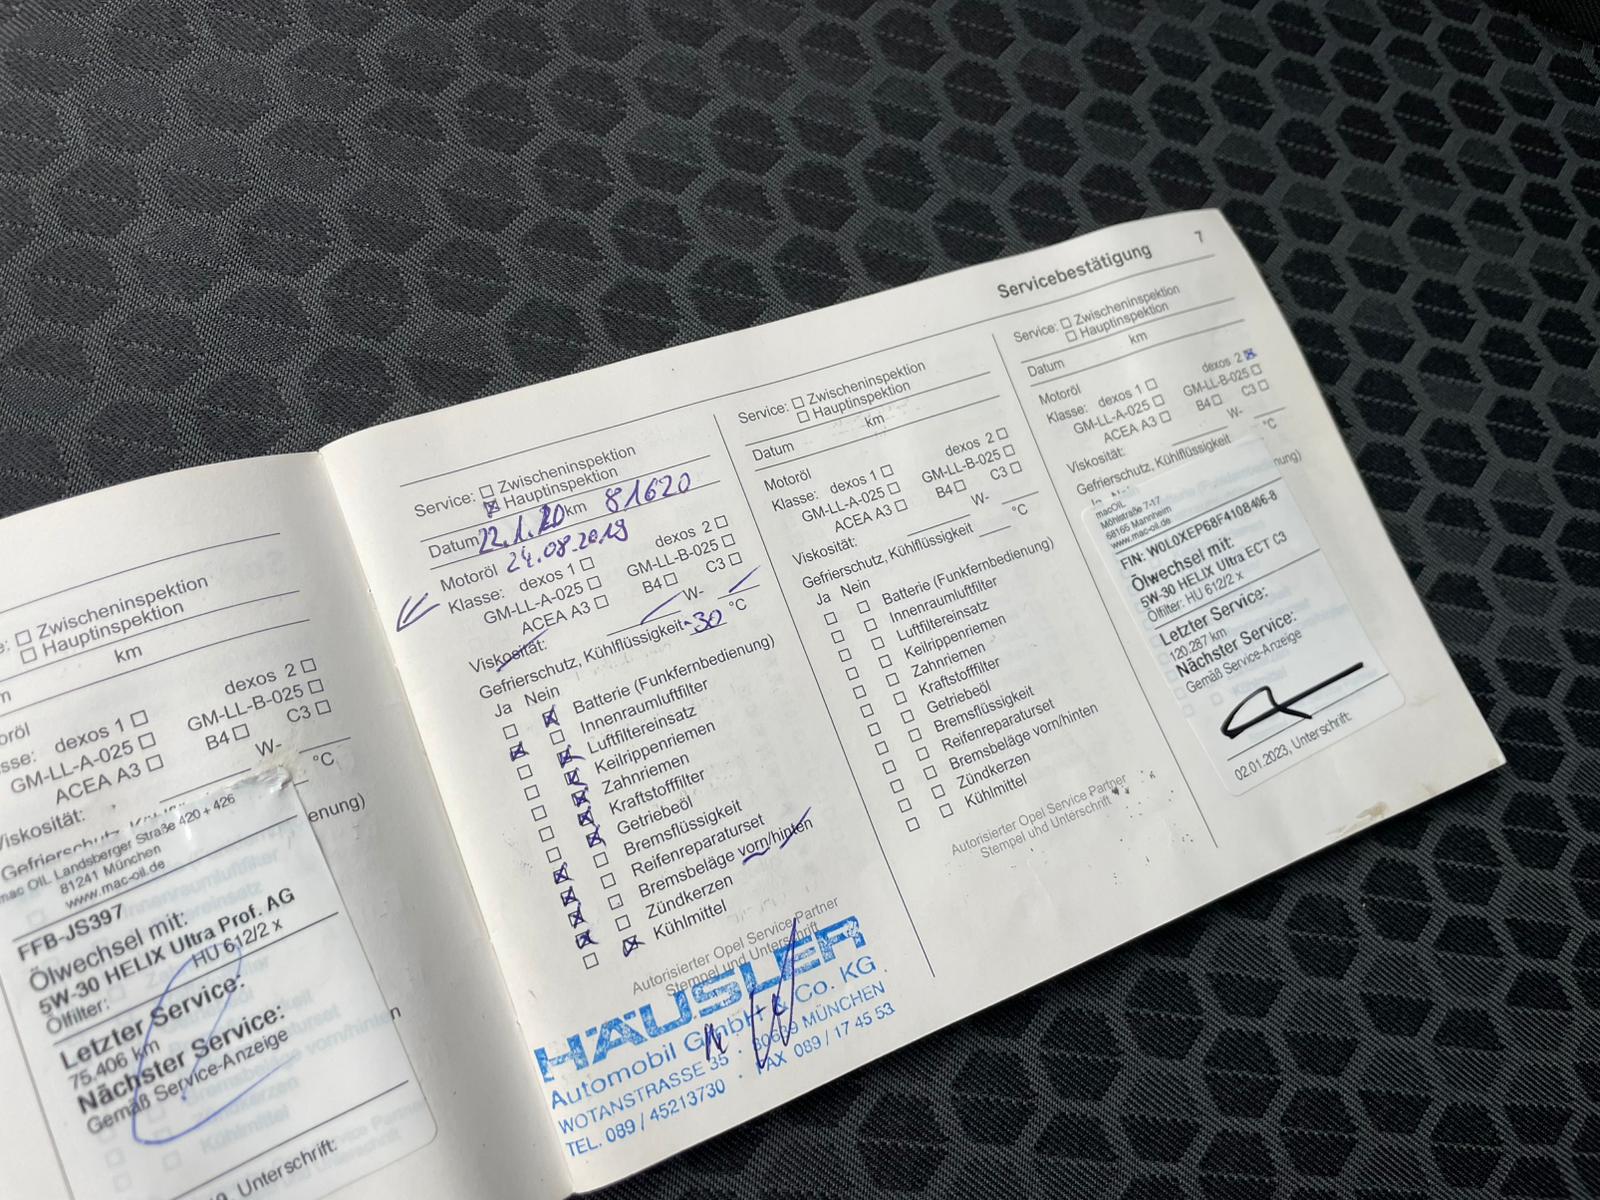 Servicebestätigung 7
Zwischeninspektion
Hauptinspektion
km
dexos 1 dexos 2
GM-LL-A-025 GM-LL-B-025
ACEA A3 B4 C3
W-
Viskosität: °C
mac OIL Landsberger Straße 420 + 426
81241 München
www.mac-oil.de
FFB-JS397
Ölwechsel mit:
5W-30 HELIX Ultra Prof. AG
Ölfilter: HU 612/2 x
Letzter Service:
75.406 km
Nächster Service:
Gemäß Service-Anzeige
Unterschrift:
Service: Zwischeninspektion
Hauptinspektion
Datum 22.1.20 km 81620
Motoröl 24.08.2019
Klasse: dexos 1 dexos 2
GM-LL-A-025 GM-LL-B-025
ACEA A3 B4 C3
Viskosität: W-
Gefrierschutz, Kühlflüssigkeit -30 °C
Ja Nein
Batterie (Funkfernbedienung)
Innenraumluftfilter
Luftfiltereinsatz
Keilrippenriemen
Zahnriemen
Kraftstofffilter
Getriebeöl
Bremsflüssigkeit
Reifenreparaturset
Bremsbeläge vorn/hinten
Zündkerzen
Kühlmittel
Autorisierter Opel Service Partner
Stempel und Unterschrift
HÄUSLER
Automobil GmbH & Co. KG
WOTANSTRASSE 35 · 80639 MÜNCHEN
TEL. 089 / 45213730 · FAX 089 / 17 45 53
Service: Zwischeninspektion
Hauptinspektion
Datum km
Motoröl
Klasse: dexos 1 dexos 2
GM-LL-A-025 GM-LL-B-025
ACEA A3 B4 C3
Viskosität: W-
Gefrierschutz, Kühlflüssigkeit °C
Ja Nein
Batterie (Funkfernbedienung)
Innenraumluftfilter
Luftfiltereinsatz
Keilrippenriemen
Zahnriemen
Kraftstofffilter
Getriebeöl
Bremsflüssigkeit
Reifenreparaturset
Bremsbeläge vorn/hinten
Zündkerzen
Kühlmittel
Autorisierter Opel Service Partner
Stempel und Unterschrift
Service: Zwischeninspektion
Hauptinspektion
Datum km
Motoröl
Klasse: dexos 1 dexos 2
GM-LL-A-025 GM-LL-B-025
ACEA A3 B4 C3
Viskosität: W-
Gefrierschutz, Kühlflüssigkeit °C
macOIL
Möhlstraße 7-17
68165 Mannheim
www.mac-oil.de
FIN: W0L0XEP68F4108406-8
Ölwechsel mit:
5W-30 HELIX Ultra ECT C3
Ölfilter: HU 612/2 x
Letzter Service:
120.287 km
Nächster Service:
Gemäß Service-Anzeige
02.01.2023, Unterschrift: